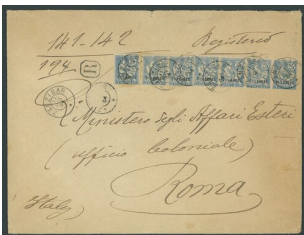 141-142 Registered
194 R
3
Ministero degli Affari Esteri
(Ufficio Coloniale)
Roma
Italy